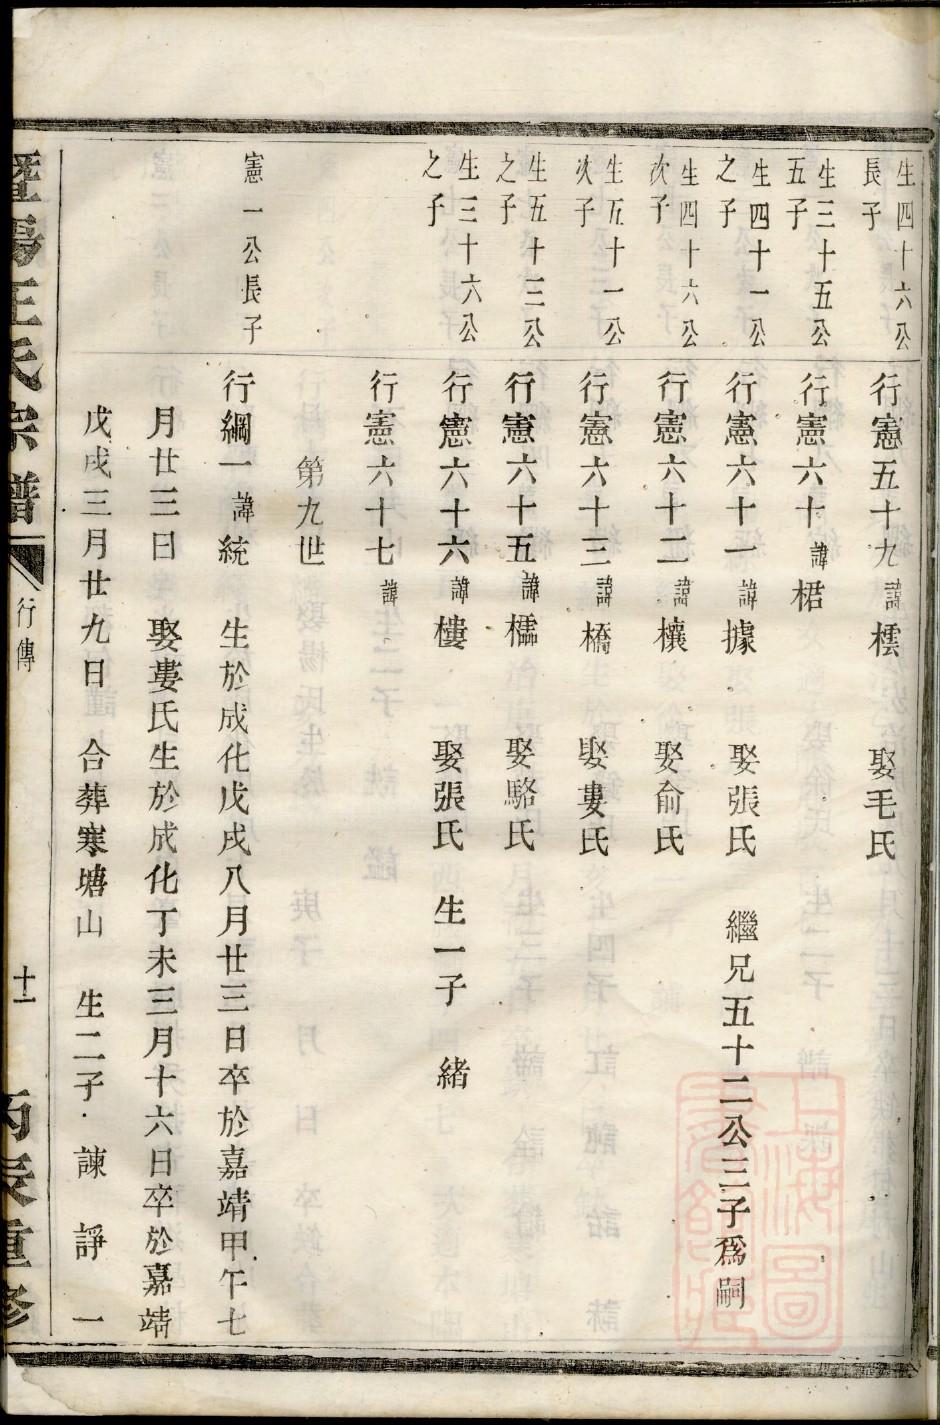 生四十六公
長子
行憲五十九諱橒　娶毛氏
生三十五公
五子
行憲六十諱楉
生四十一公
之子
行憲六十一諱據　娶張氏　繼兄五十二公三子爲嗣
生四十六公
次子
行憲六十二諱欀　娶俞氏
生五十一公
次子
行憲六十三諱橋　娶婁氏
生五十三公
之子
行憲六十五諱檽　娶駱氏
生三十六公
之子
行憲六十六諱樓　娶張氏　生一子　緒
行憲六十七諱
第九世
憲一公長子
行綱一諱統　生於成化戊戌八月廿三日卒於嘉靖甲午七
月廿三日　娶婁氏生於成化丁未三月十六日卒於嘉靖
戊戌三月廿九日　合葬寒塘山　生二子　諫　諍　一
暨陽王氏宗譜　行傳　十一　丙辰重修
上海圖書館藏